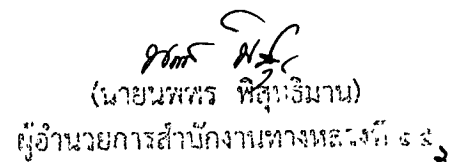 (นายนพพร พิสุทธิมาน)
ผู้อำนวยการสำนักงานทางหลวงที่